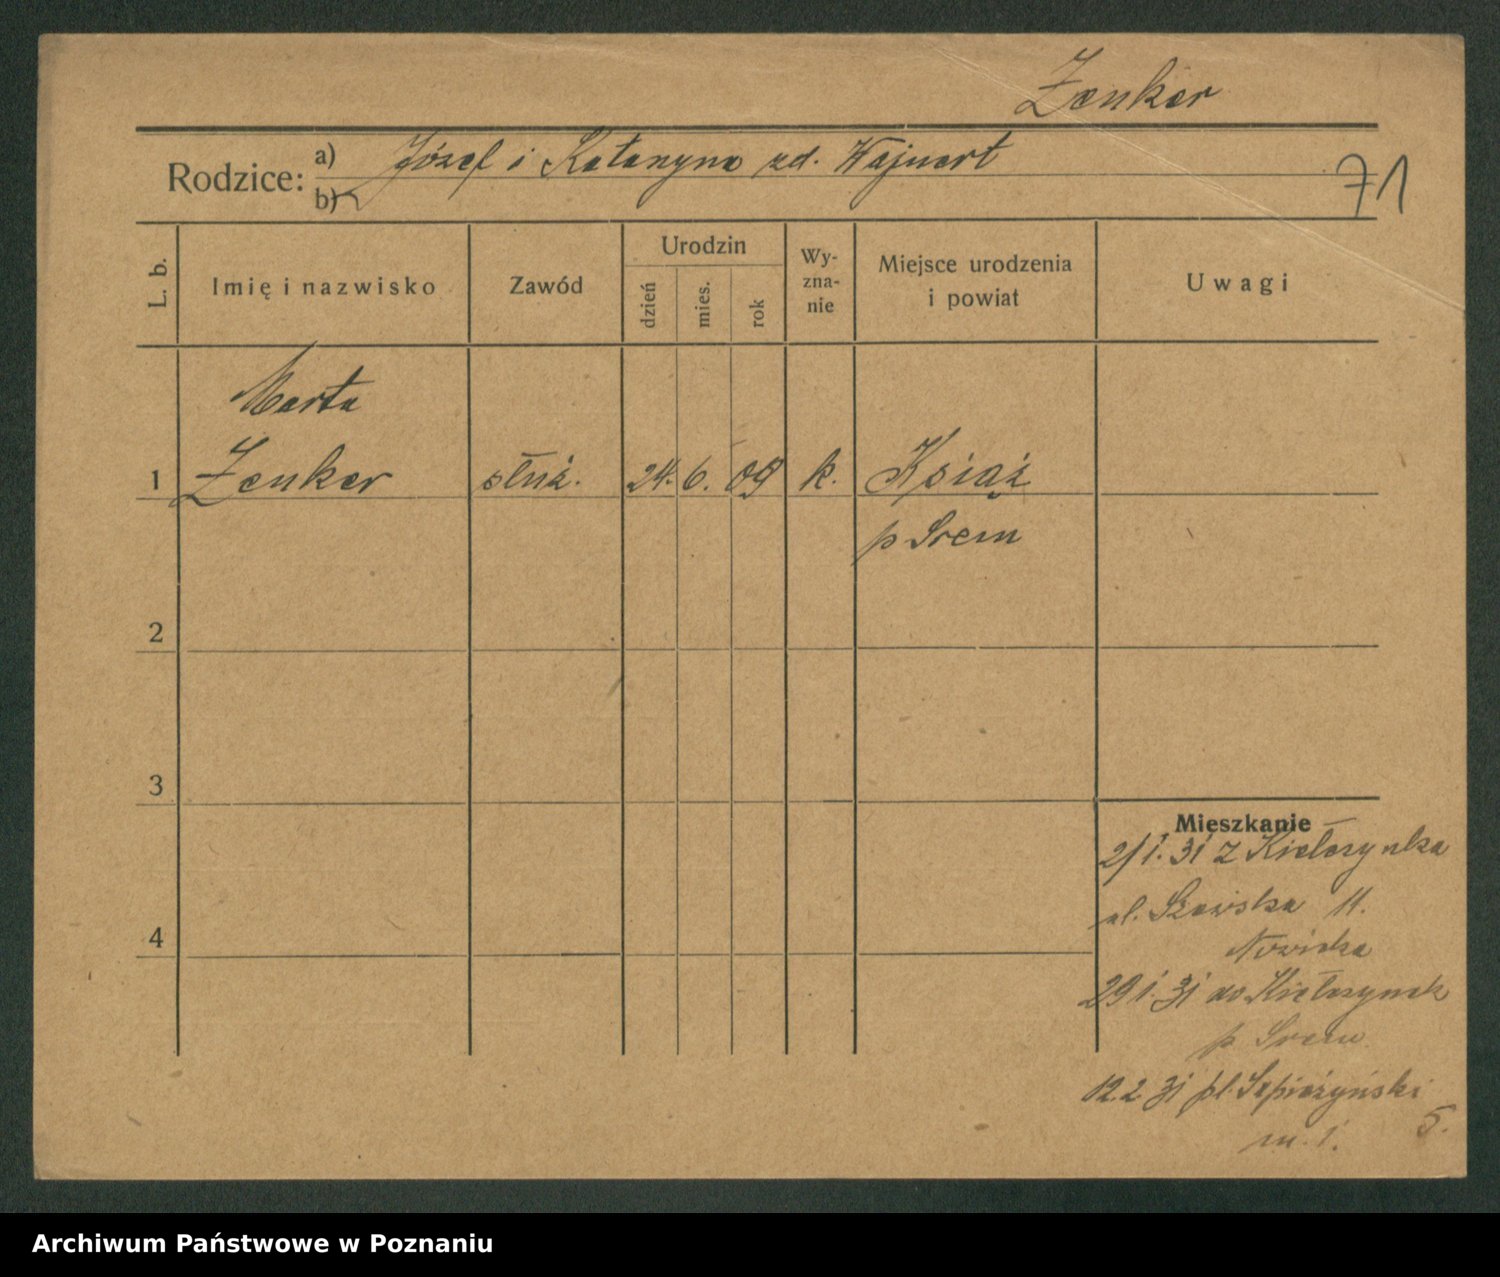 Zenker
Rodzice:
a) Józef i Katarzyna zd. Wajnert
b)
71
L. b.
Imię i nazwisko
Zawód
Urodzin
dzień
mies.
rok
Wy-
zna-
nie
Miejsce urodzenia
i powiat
Uwagi
Marta
1 Zenker służ. 24. 6. 09 k. Książ
p Śrem
2
3
4
Mieszkanie
2/1. 31 z Kiełczynka
ul. Szewska 11.
Nowicka
29 1. 31 do Kiełczynek
p Śrem
12.2 31 pl. Sapieżyński
5.
m. 1.
Archiwum Państwowe w Poznaniu